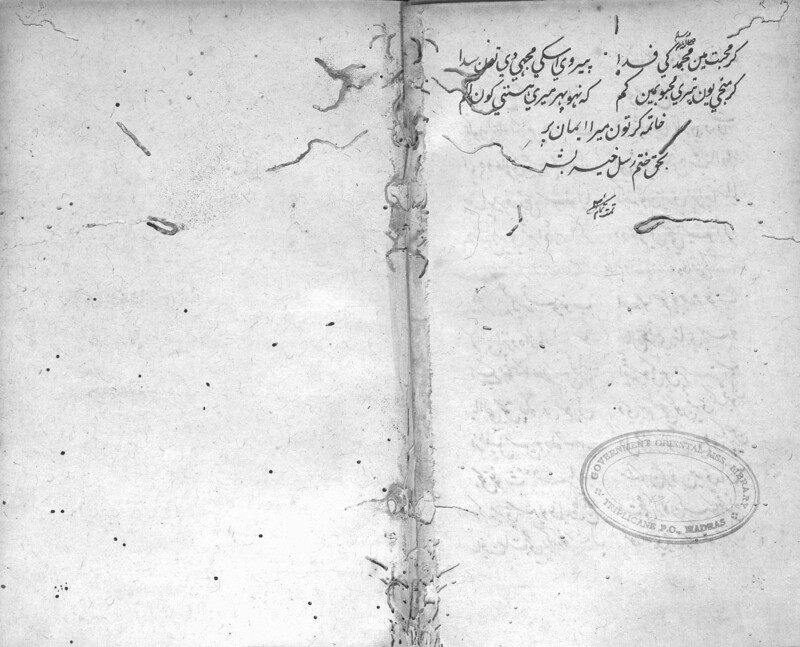 کر محبت مین محمد کي فدا پیروي اسکي مجهي دي تون سدا
کر مجي یون تیري محبو بمین کم که نهو پهر میري هستي کون الم
خاتمه کر تون میرا ایمان پر
بحق ختم رسل خیر بشر
تمت تمام
GOVERNMENT ORIENTAL MSS. LIBRARY
TRIPLICANE P.O., MADRAS